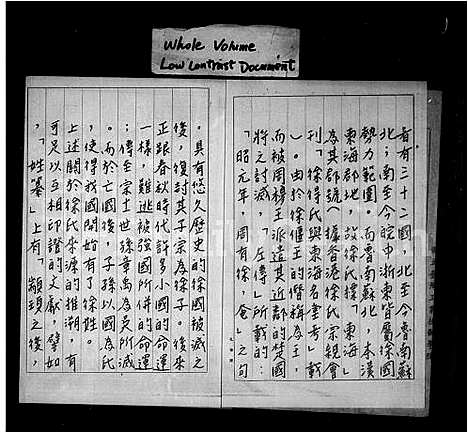 Whole Volume
Low Contrast Document
者有三十二國,北至今魯南蘇
北;南至今皖中浙東皆屬徐國
勢力範圍。而魯南蘇北,本漢
東海郡地,故徐氏擇「東海」
為其郡號〈據香港徐氏宗親會
刊「徐得氏與東海名堂考」載
〉。由於徐偃王的僭稱為王,
而被周穆王派遣其近郡的楚國
將之討滅,「左傳」所載的:
「昭元年,周有徐、奄」之句
。具有悠久歷史的徐國被滅之
後,復封其子宗為徐子。後來
正跟春秋時代許多小國的命運
一樣,難逃被強國所併的命運
;傳至宗十一世孫章禹為吳所滅
。而於亡國後,子孫以國為氏
,使得我國開始有了徐姓。
上述關於徐氏李源的推溯,有
可足以互相印證的文獻,譬如
,「姓纂」上有「顓頊之後,